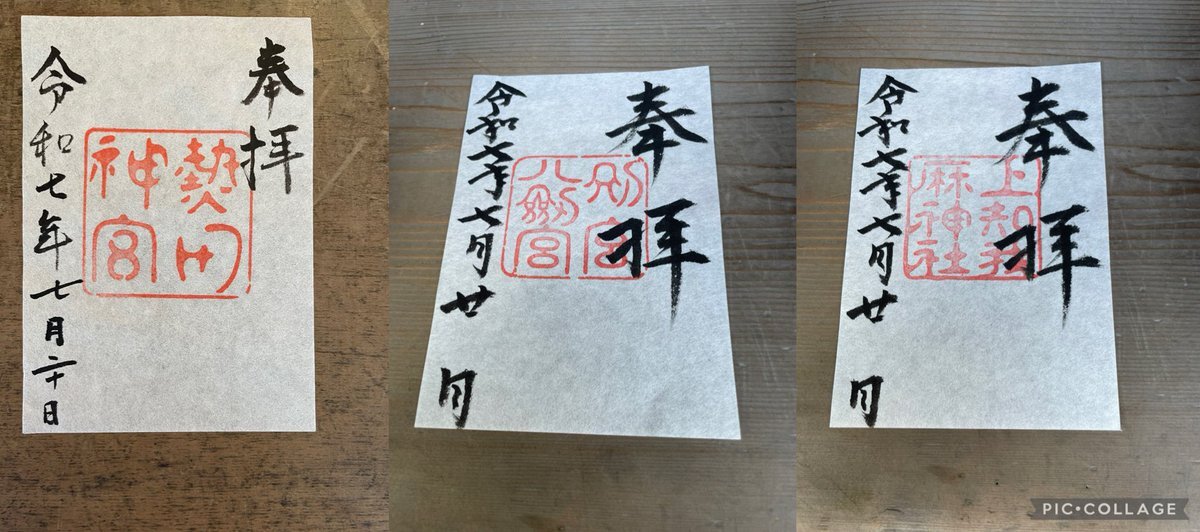 奉拝
熱田
神宮
令和七年七月二十日
奉拝
別宮
八剱宮
令和七年七月廿日
奉拝
上知我
麻神社
令和七年七月廿日
PIC•COLLAGE